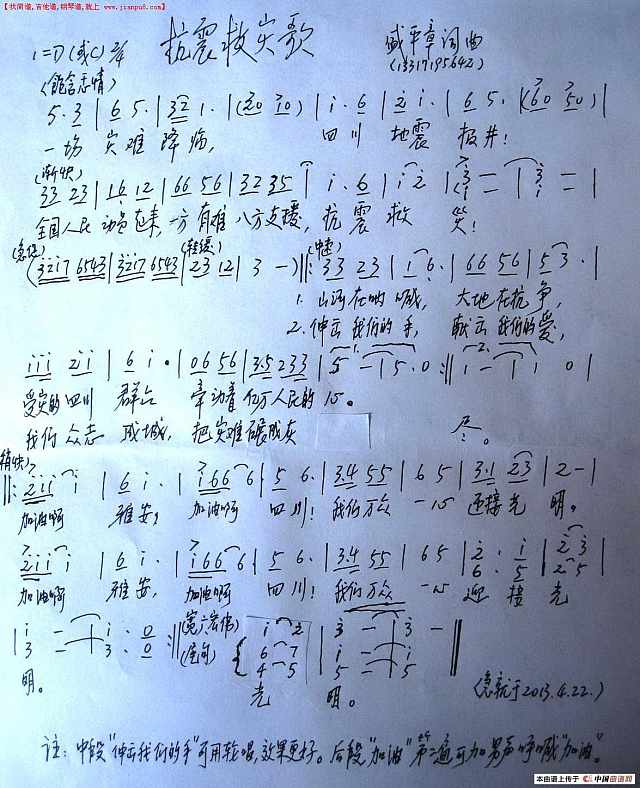 【找简谱,吉他谱,钢琴谱,就上 www.jianpu8.com】
抗震救灾歌
1=D(或C) 2/4
盛平章词曲
(13317195642)
(饱含悲情)
5·3 | 6 5· | 32 1· | (20 10) | i· 6 | 2 i· | 6 5· | (60 50) |
一场 灾难 降临, 四川 地震
(渐快)
33 23 | 16 12 | 66 56 | 32 35 | i· 6 | i 2 |
全国人民 动员起来,一方有难 八方支援,抗震救灾!
(3217 6543 | 3217 6543 | 23 12 | 3 — ) ‖: 33 23 | 1 6· | 66 56 | 5 3· |
(中速)
1. 山河在呐喊, 大地在抗争,
2. 伸出我们的手, 献出我们的爱,
iii 2ii | 6 i· | 06 56 | 3·5 233 | 5 — | 5· 0 :‖ i — | i 0 |
受灾的四川 群众 牵动着亿万人民的心。
我们众志 成城, 把灾难碾成灰 尽。
(稍快)
‖: 2ii i | 6 i· | i66 6 | 5 6· | 3·4 55 | 6 5 | 3·1 23 | 2 — |
加油啊 雅安, 加油啊 四川! 我们万众 一心 迎接光 明。
2ii i | 6 i· | i66 6 | 5 6· | 3·4 55 | 6 5 |
加油啊 雅安, 加油啊 四川! 我们万众 一心 迎接光
明。
(尾句)
光 明。
(急就于2013.4.22.)
注:中段"伸出我们的手"可用轮唱,效果更好。后段"加油"第二遍可加男声呼喊"加油"。
本曲谱上传于 中国曲谱网